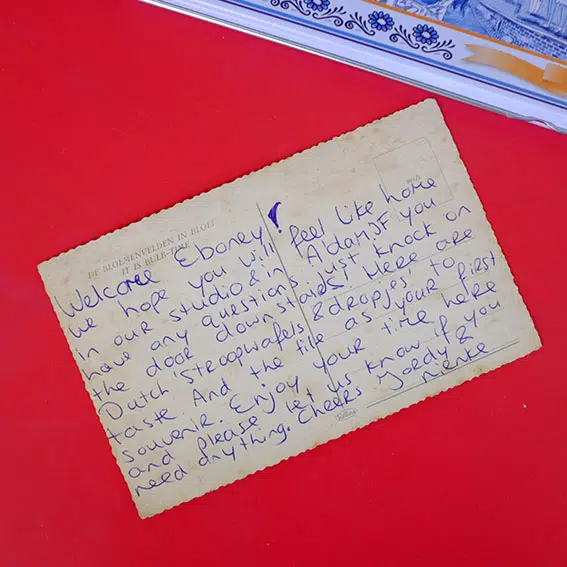 DE BLOEMENVELDEN IN BLOEI
IT IS BULB-TIME
Welcome Eboney!
We hope you will feel like home
in our studio & in A'dam. If you
have any questions just knock on
the door downstairs! Here are
Dutch 'stroopwafels & dropjes' to
taste And the tile as your first
souvenir. Enjoy your time here
and please let us know if you
need anything. Cheers Jordy &
Nienke